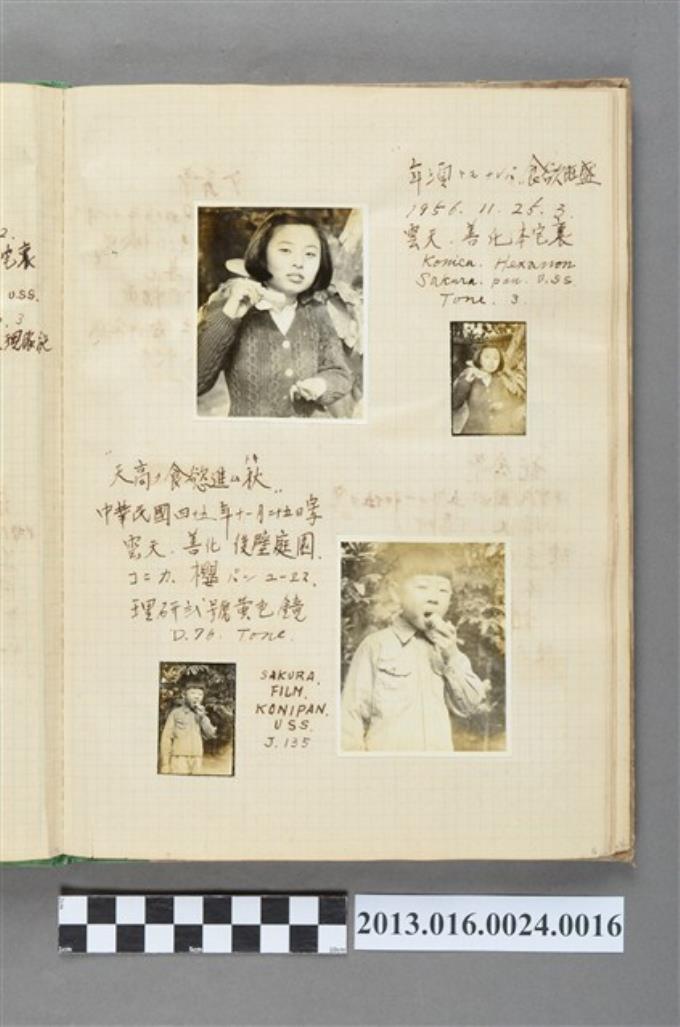 2.
宅裏
U.S.S.
. 3
食欲旺盛
1956. 11. 25. 3.
雲天. 善化本宅裏
Konica. Hexanon
Sakura. pan. U.SS.
Tone. 3.
"天高ク食慾進ム秋"
中華民國四十五年十一月二十五日
雲天. 善化 後壁庭園.
コニカ. 櫻パン ユーSS.
理研 號黄色鏡
D.76. Tone.
SAKURA.
FILM.
KONIPAN.
USS.
J. 135
2013.016.0024.0016